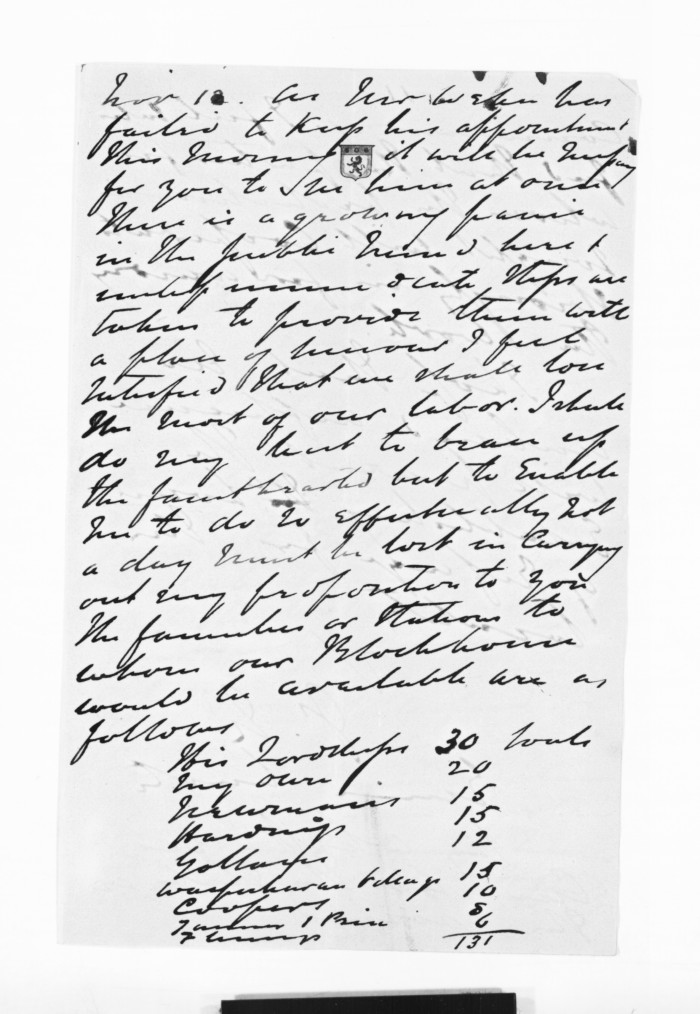 Nov 12. As Mr has
failed to keep his appointment
this morning it will be necessary
for you to see him at once
There is a growing panic
in the public mind here &
unless immediate steps are
taken to provide them with
a place of I feel
satisfied that we shall lose
the most of our labor. I shall
do my best to brace up
the fainthearted but to enable
me to do so effectually not
a day must be lost in carrying
out my proposition to you
The families or stations to
whom our Blockhouse
would be available are as
follows
His Lordships 30 souls
my own 20
Newmans 15
Hardings 15
Gollans 12
Waipukurau 15
Coopers 10
Tanner 1 Price 8
6
131